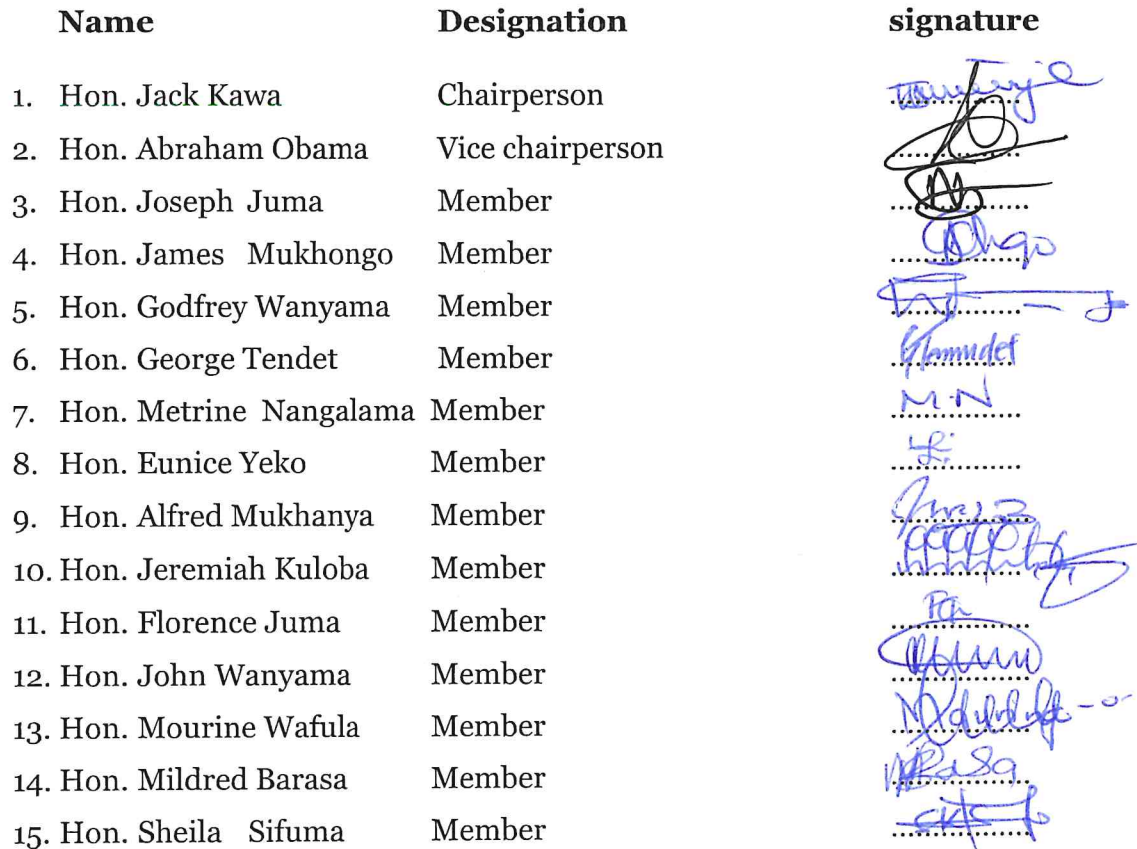 Name Designation signature
1. Hon. Jack Kawa Chairperson
2. Hon. Abraham Obama Vice chairperson
3. Hon. Joseph Juma Member
4. Hon. James Mukhongo Member
5. Hon. Godfrey Wanyama Member
6. Hon. George Tendet Member
7. Hon. Metrine Nangalama Member M.N
8. Hon. Eunice Yeko Member
9. Hon. Alfred Mukhanya Member
10. Hon. Jeremiah Kuloba Member
11. Hon. Florence Juma Member
12. Hon. John Wanyama Member
13. Hon. Mourine Wafula Member
14. Hon. Mildred Barasa Member
15. Hon. Sheila Sifuma Member